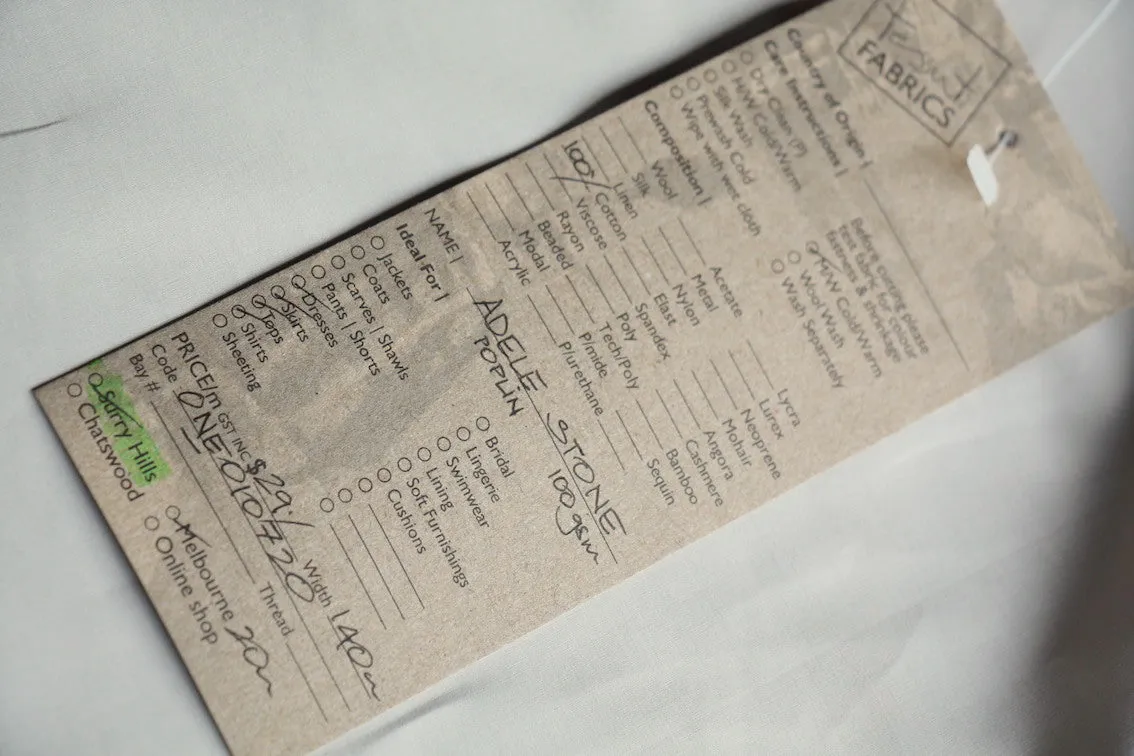 Tessuti
FABRICS
Country of Origin |
Care Instructions |
Dry Clean (P)
H/W Cold/Warm
Silk Wash
Prewash Cold
Wipe with wet cloth
Before cutting please
test fabric for colour
fastness & shrinkage
M/W Cold/Warm
Wool Wash
Wash Separately
Composition |
Wool
Silk
Linen
100% Cotton
Viscose
Rayon
Beaded
Modal
Acrylic
Acetate
Metal
Nylon
Elast
Spandex
Poly
Tech/Poly
P/mide
P/urethane
Lycra
Lurex
Neoprene
Mohair
Angora
Cashmere
Bamboo
Sequin
NAME | ADELE STONE
POPLIN 100gsm
Ideal For |
Jackets
Coats
Scarves | Shawls
Pants | Shorts
Dresses
Skirts
Tops
Shirts
Sheeting
Bridal
Lingerie
Swimwear
Lining
Soft Furnishings
Cushions
PRICE/m GST INC $29/ Width 140cm
Code ONE010720
Bay # Thread
Surry Hills
Chatswood
Melbourne
Online shop